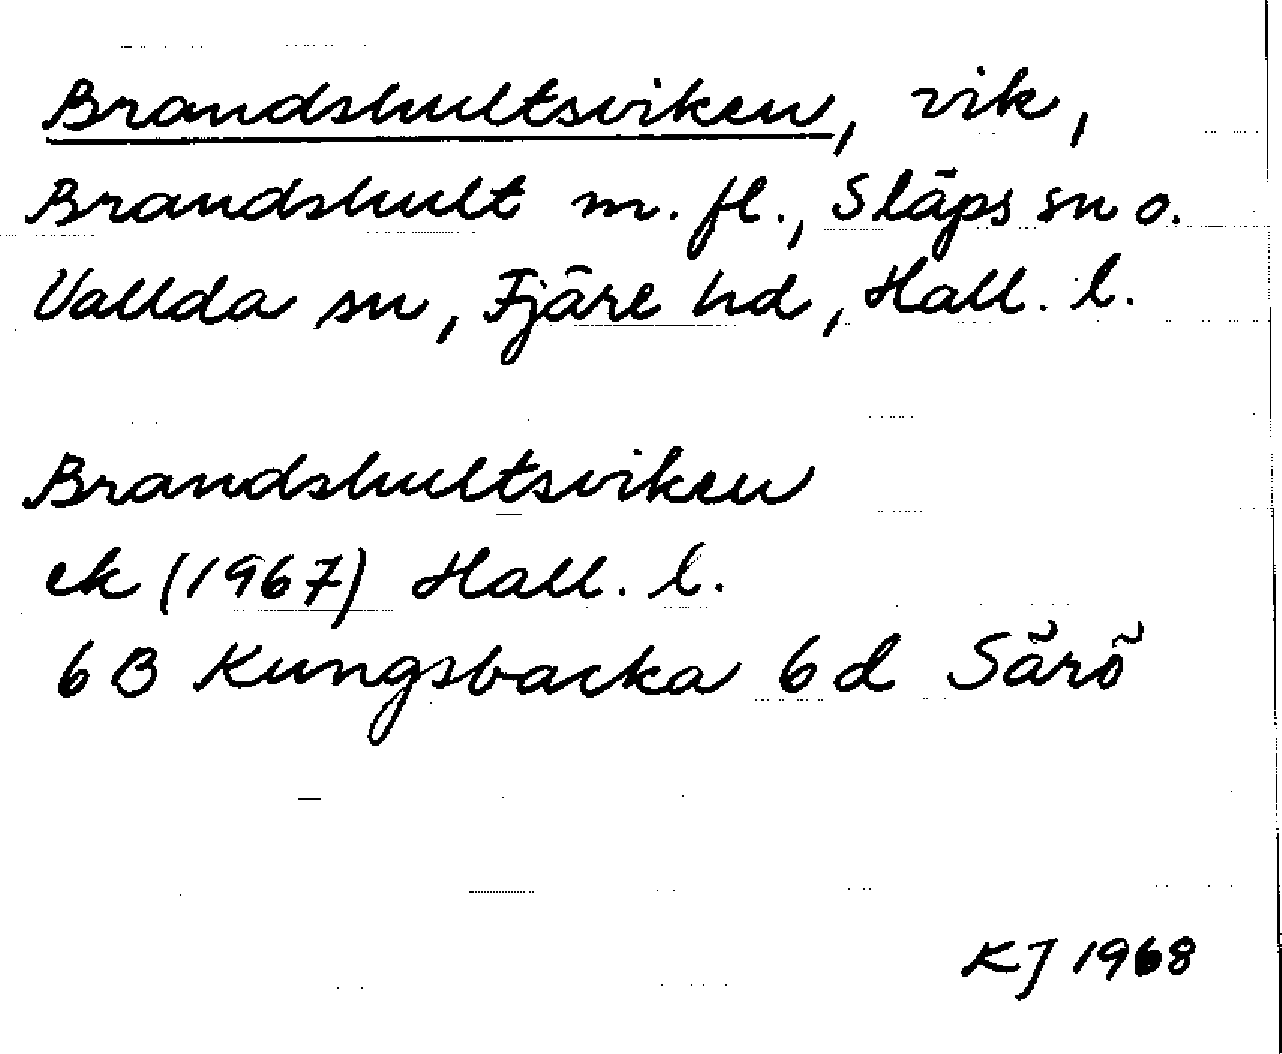 Brandshultsviken, vik,
Brandshult m. fl., Släps sn o.
Vallda sn, Fjäre hd, Hall. l.
Brandshultsviken
ek (1967) Hall. l.
6B Kungsbacka 6d Särö
KJ 1968